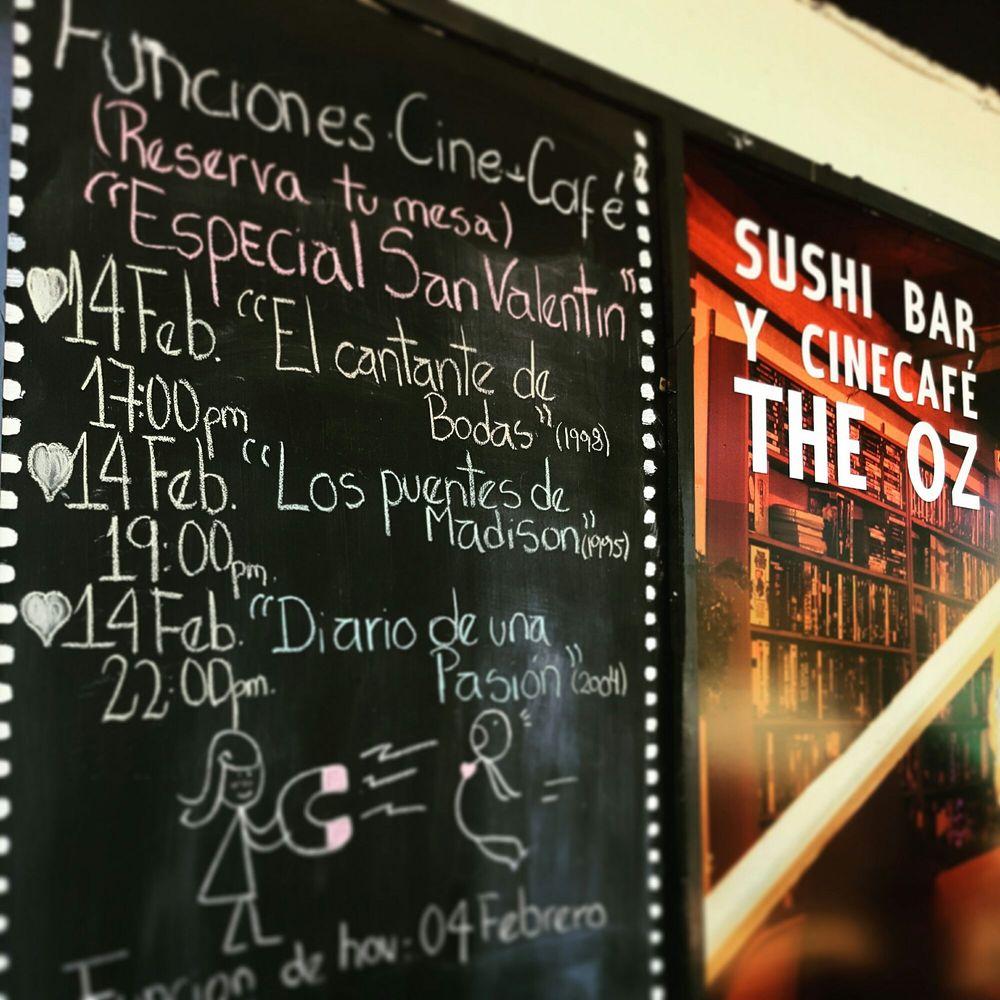 Funciones Cine-Café
(Reserva tu mesa)
"Especial San Valentin"
14 Feb. "El cantante de
17:00pm Bodas" (1998)
14 Feb. "Los puentes de
19:00pm. Madison" (1995)
14 Feb. "Diario de una
22:00pm. Pasión" (2004)
Función de hoy: 04 Febrero
SUSHI BAR
Y CINECAFÉ
THE OZ